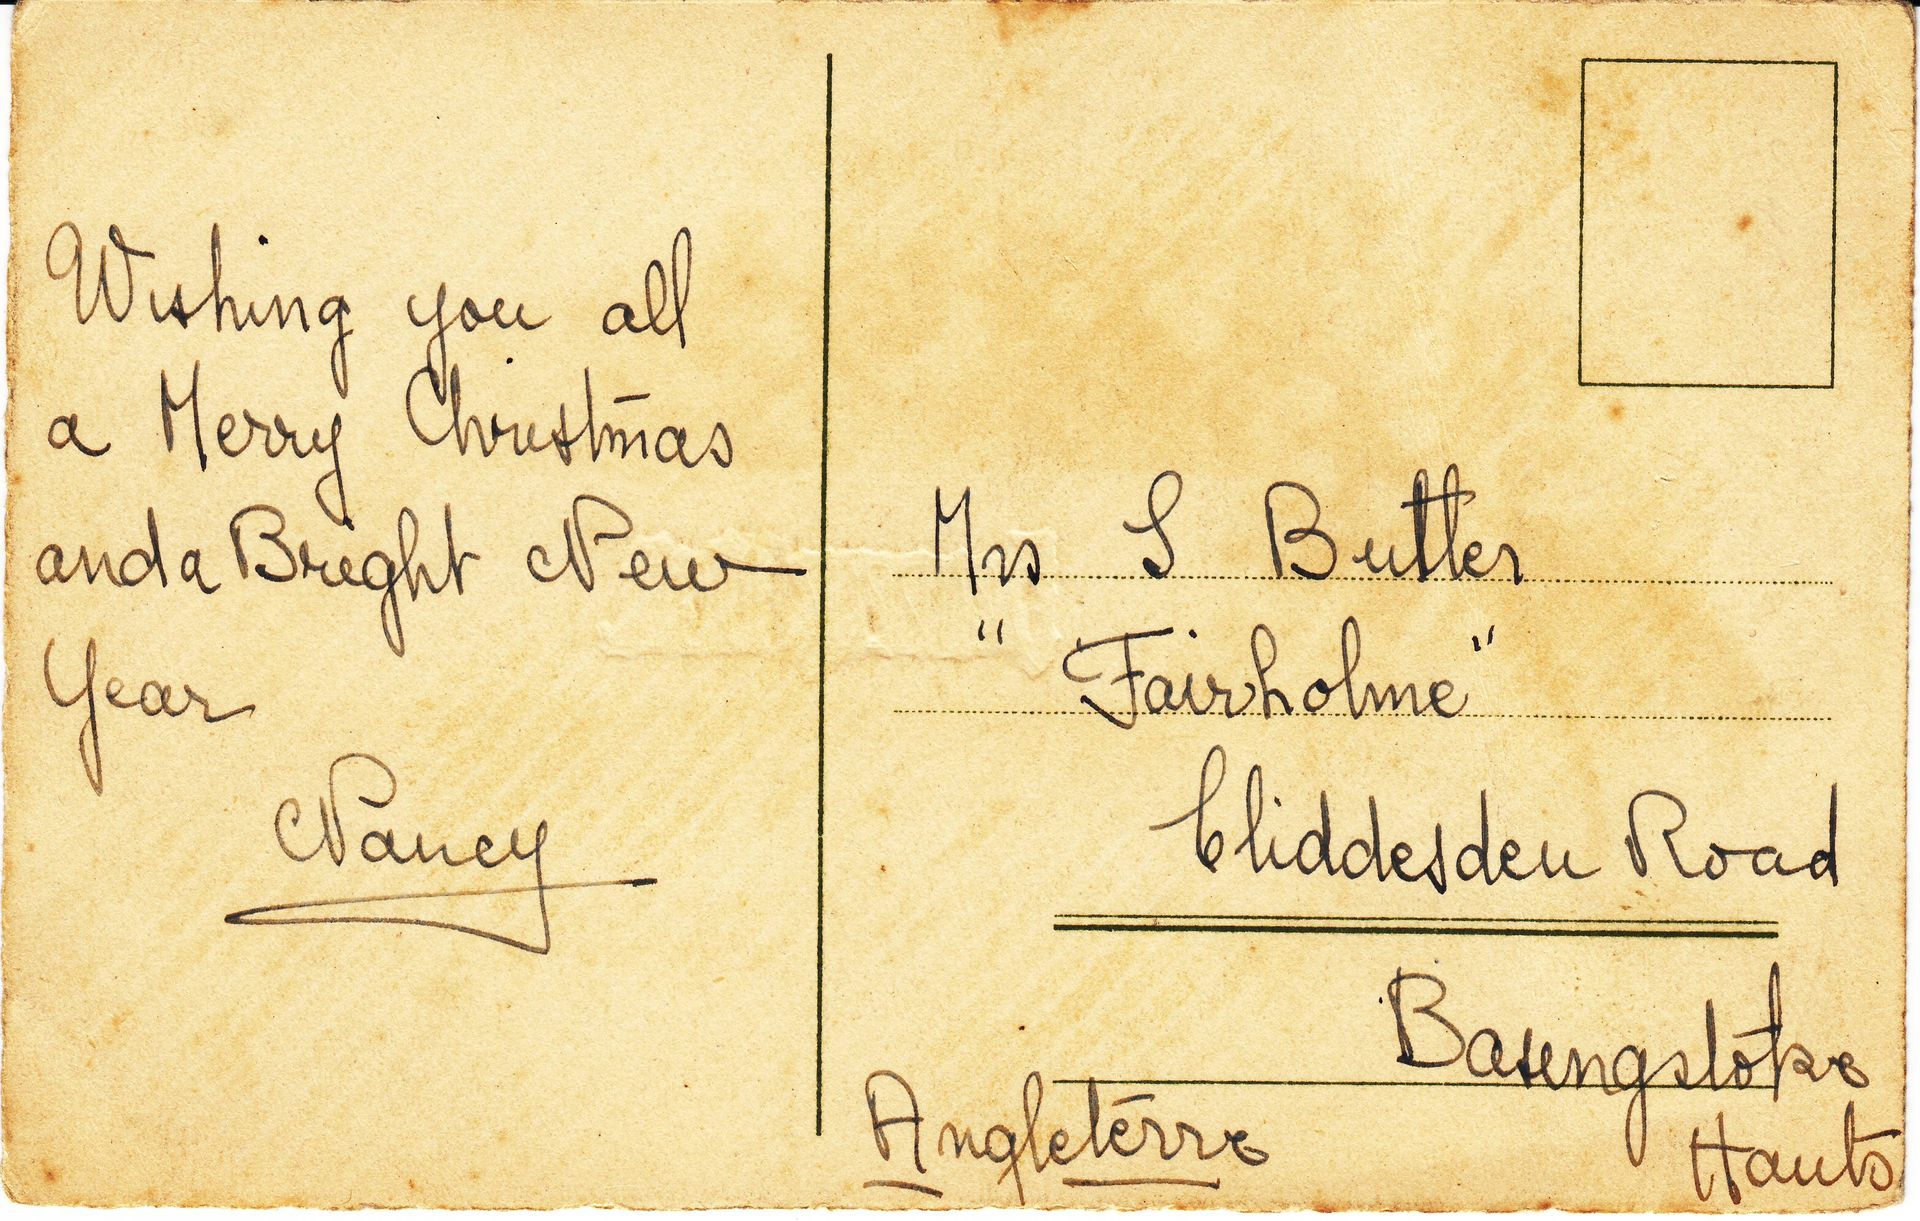 Wishing you all
a Merry Christmas
and a Bright New
Year
Nancy
Mrs S Butler
"Fairholme"
Cliddesden Road
Basingstoke
Hants
Angleterre